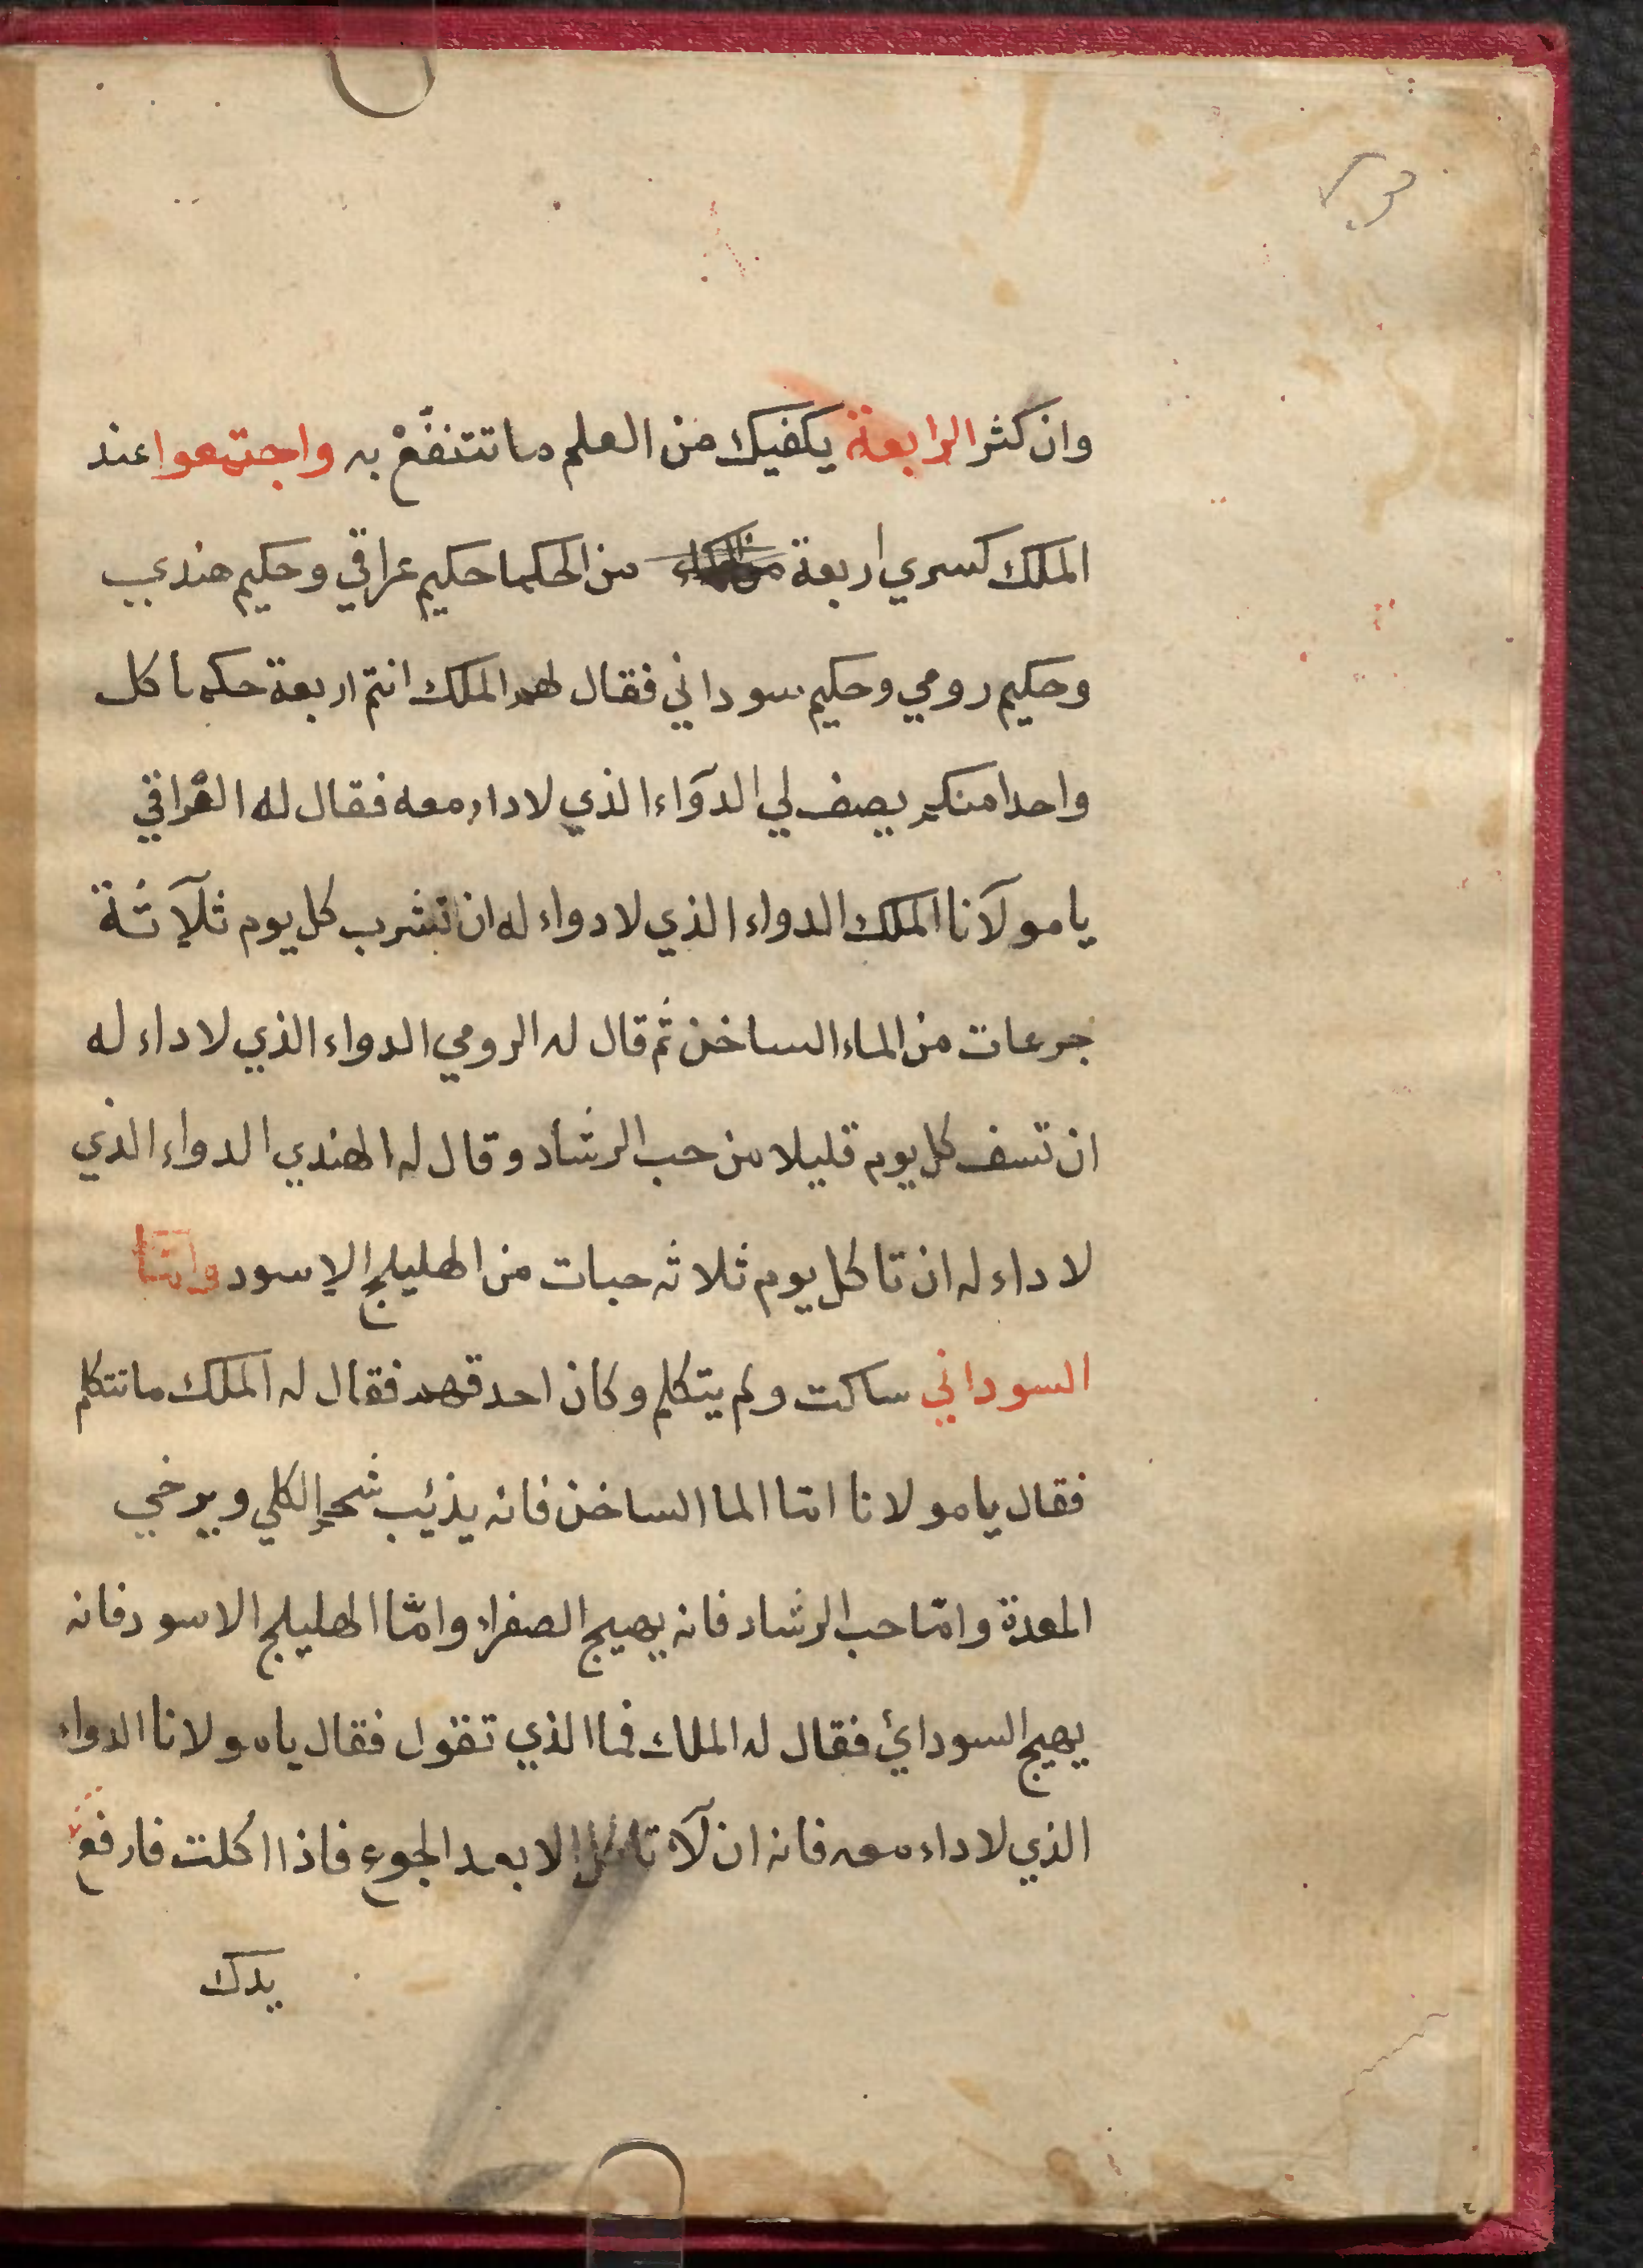 وان كثر الرابعة يكفيك من العلم ما تتنفع به واجتمعوا عند
الملك كسري اربعة من الحكما حكيم عراقي وحكيم هندي
وحكيم رومي وحكيم سوداني فقال لهم الملك انتم اربعة حكما كل
واحدا منكم يصف لي الدوآء الذي لا داء معه فقال له العراقي
يا مولآنا الملك الدواء الذي لا دواء له ان تشرب كل يوم ثلآثة
جرعات من الماء الساخن ثم قال له الرومي الدواء الذي لا داء له
ان تسف كل يوم قليلا من حب الرشاد وقال له الهندي الدواء الذي
لا داء له ان تاكل يوم ثلاثه حبات من الهليلج الاسود وامّا
السوداني ساكت ولم يتكلم وكان احدقهم فقال له الملك ما تتكلم
فقال يا مولانا امّا الما الساخن فانه يذئيب شحم الكلي ويرخي
المعدة وامّا حب الرشاد فانه يهيج الصفراء وامّا الهليلج الاسود فانه
يهيج السودائ فقال له الملك فما الذي تقول فقال يا مولانا الدواء
الذي لا داء معه فانه ان لآ تاكل الا بعد الجوع فاذا اكلت فارفع
يدك